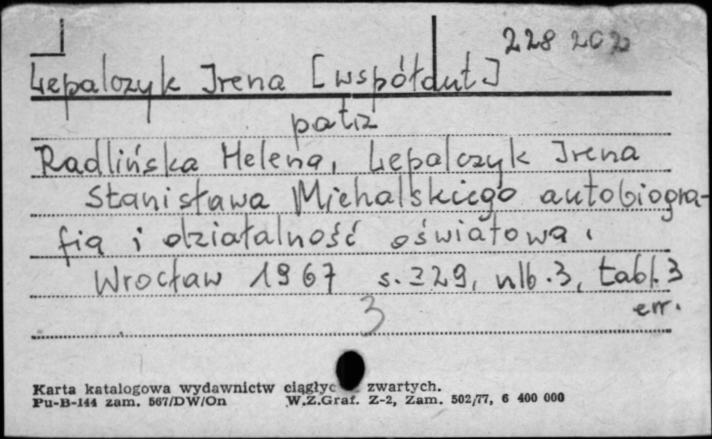 228 202
Lepalczyk Irena [współaut]
patrz
Radlińska Helena, Lepalczyk Irena
Stanisława Michalskiego autobiogra-
fia i działalność oświatowa.
Wrocław 1967 s. 329, nlb. 3, tabl. 3
err.
3
Karta katalogowa wydawnictw ciągłyc zwartych.
Pu-B-144 zam. 567/DW/On W.Z.Graf. Z-2, Zam. 502/77, 6 400 000